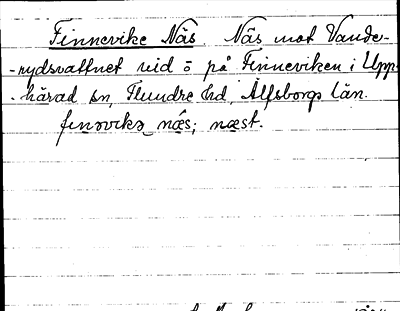 Finnevike Näs. Näs mot Vande-
-rydsvattnet vid ö på Finneviken i Upp-
-härad sn, Flundre hd, Älfsborgs län.
finəvikə næs; næst.